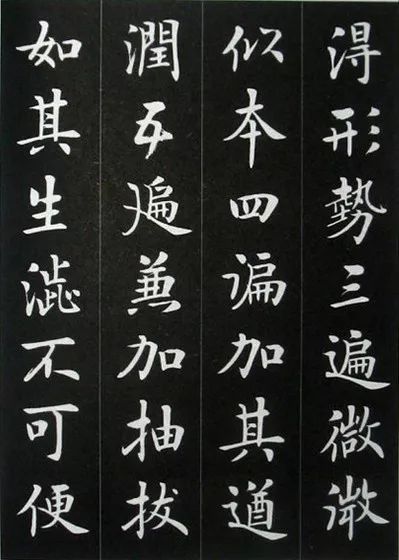 得形勢三遍微微
似本四遍加其遒
潤五遍兼加抽拔
如其生澁不可便